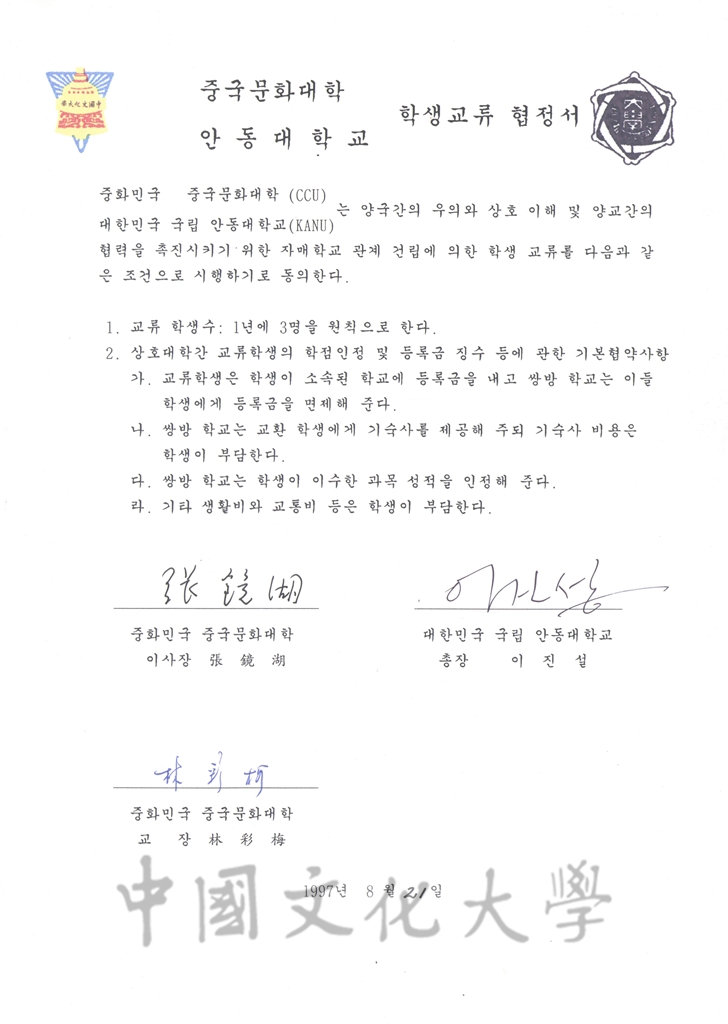 中國文化大學
중국문화대학
안동대학교
학생교류 협정서
중화민국 중국문화대학 (CCU)
대한민국 국립 안동대학교(KANU)
는 양국간의 우의와 상호 이해 및 양교간의
협력을 촉진시키기 위한 자매학교 관계 건립에 의한 학생 교류를 다음과 같
은 조건으로 시행하기로 동의한다.
1. 교류 학생수: 1년에 3명을 원칙으로 한다.
2. 상호대학간 교류학생의 학점인정 및 등록금 징수 등에 관한 기본협약사항
가. 교류학생은 학생이 소속된 학교에 등록금을 내고 쌍방 학교는 이들
학생에게 등록금을 면제해 준다.
나. 쌍방 학교는 교환 학생에게 기숙사를 제공해 주되 기숙사 비용은
학생이 부담한다.
다. 쌍방 학교는 학생이 이수한 과목 성적을 인정해 준다.
라. 기타 생활비와 교통비 등은 학생이 부담한다.
張鏡湖
이진설
중화민국 중국문화대학
이사장 張 鏡 湖
대한민국 국립 안동대학교
총장 이 진 설
林彩梅
중화민국 중국문화대학
교 장 林 彩 梅
1997년 8 월 21 일
中國文化大學